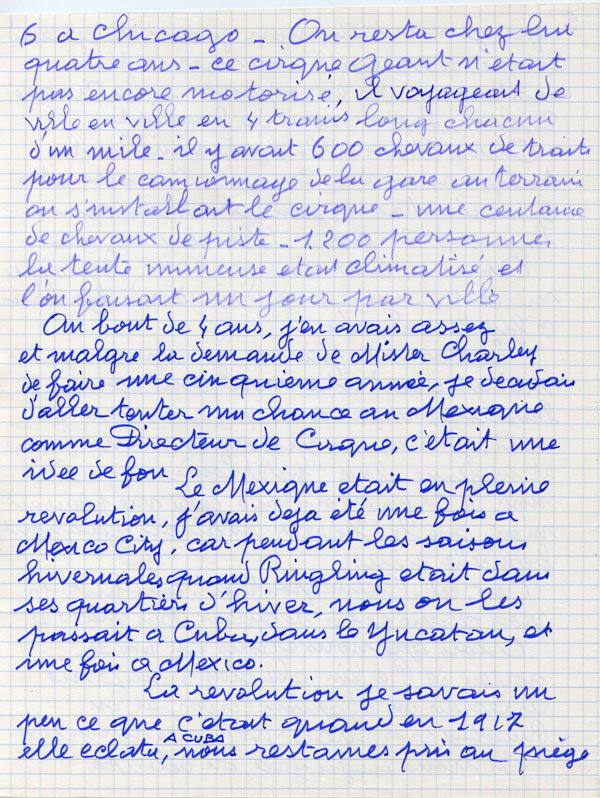 6 a chicago - On resta chez lui
quatre ans - ce cirque Geant n'était
pas encore motorisé, il voyageait de
ville en ville en 4 trains long chacun
d'un mile - il y avait 600 chevaux de traits
pour le camionnage de la gare au terrain
ou s'installait le cirque - une centaine
de chevaux de piste - 1.200 personnes
la tente immense etait climatisé et
l'on faisait un jour par ville
Au bout de 4 ans, j'en avais assez
et malgre la demande de Mister Charley
de faire une cinquieme année, je decidais
d'aller tenter ma chance au Mexique
comme Directeur de Cirque, c'était une
idee de fou
Le Mexique etait en pleine
revolution, j'avais deja été une fois a
Mexico City, car pendant les saisons
hivernales quand Ringling etait dans
ses quartiers d'hiver, nous on les
passait a Cuba, dans le Yucatan, et
une fois a Mexico.
La revolution je savais un
peu ce que c'etait quand en 1917
elle eclata, A CUBA nous restames pris au piège